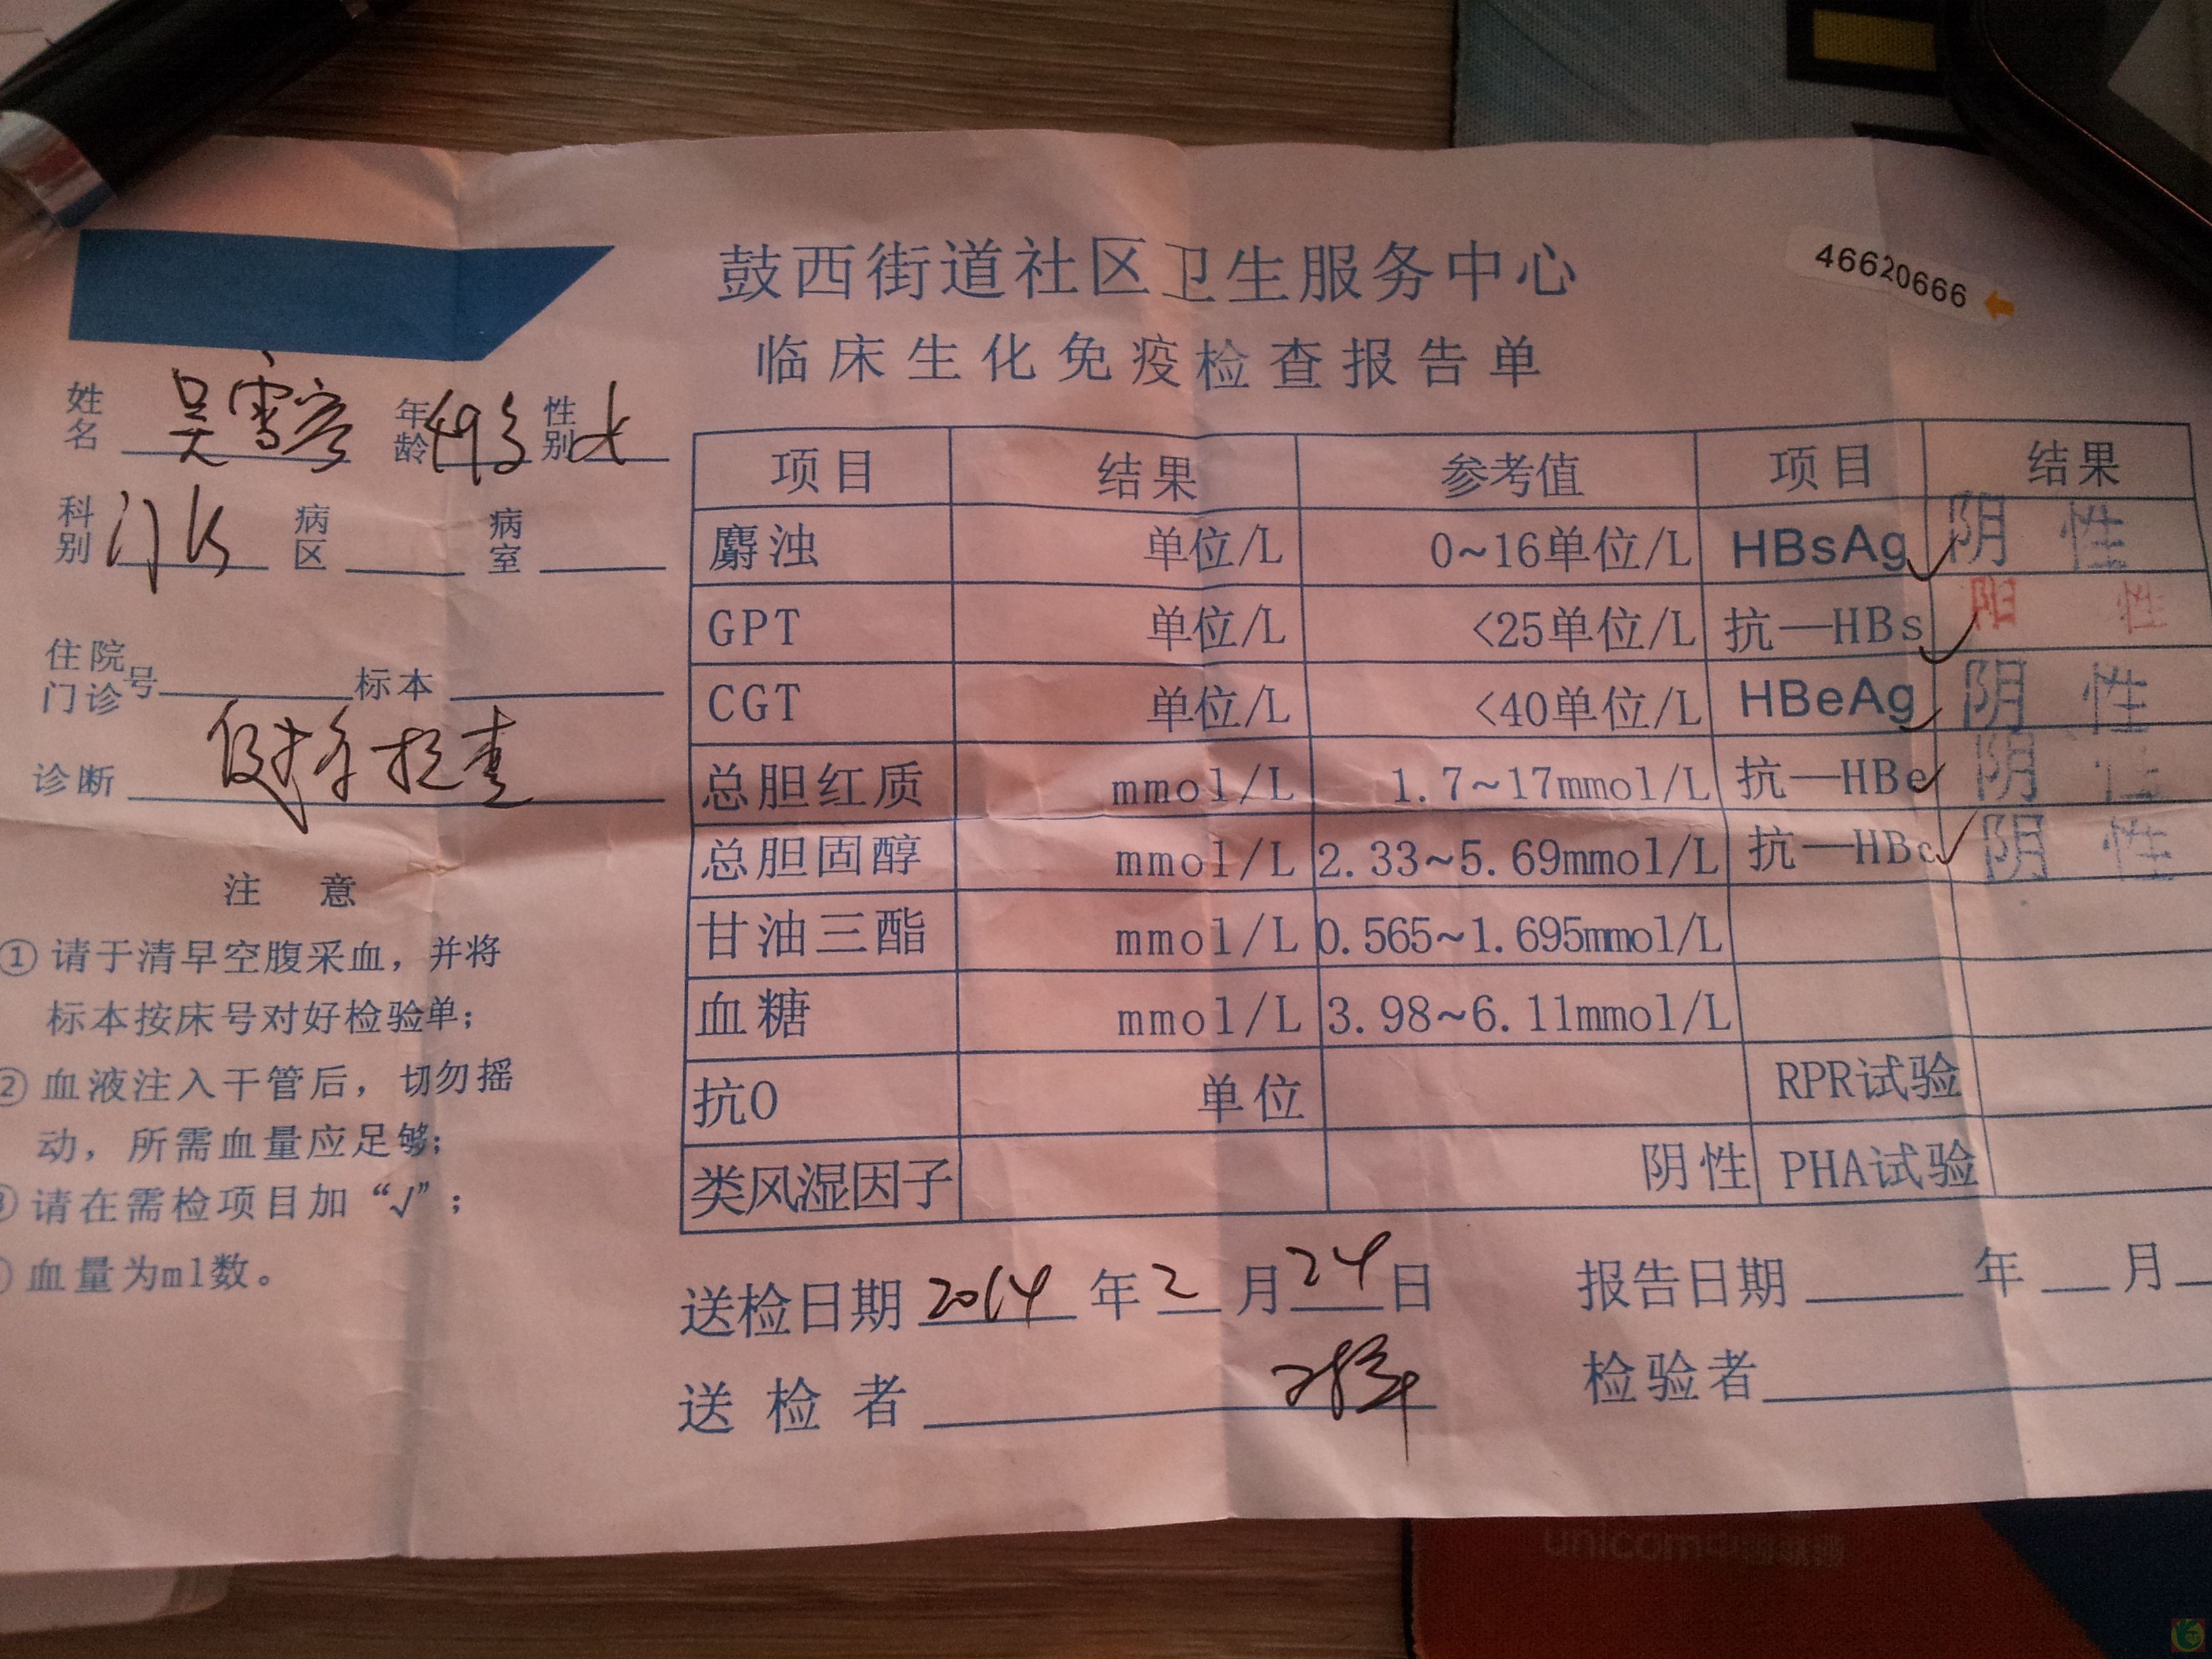 鼓西街道社区卫生服务中心
46620666
临床生化免疫检查报告单
姓名 吴雪容 年龄 49岁 性别 女
科别 门诊 病区 病室
住院门诊号 标本
诊断 健康检查
注 意
① 请于清早空腹采血，并将
标本按床号对好检验单；
② 血液注入干管后，切勿摇
动，所需血量应足够；
③ 请在需检项目加“√”；
血量为ml数。
项目 结果 参考值 项目 结果
麝浊 单位/L 0~16单位/L HBsAg ✓ 阴性
GPT 单位/L <25单位/L 抗—HBs ✓ 阳性
CGT 单位/L <40单位/L HBeAg ✓ 阴性
总胆红质 mmol/L 1.7~17mmol/L 抗—HBe ✓ 阴性
总胆固醇 mmol/L 2.33~5.69mmol/L 抗—HBc ✓ 阴性
甘油三酯 mmol/L 0.565~1.695mmol/L
血糖 mmol/L 3.98~6.11mmol/L
抗O 单位 RPR试验
类风湿因子 阴性 PHA试验
送检日期 2014 年 2 月 24 日 报告日期 年 月
送检者 检验者
unicom中国联通